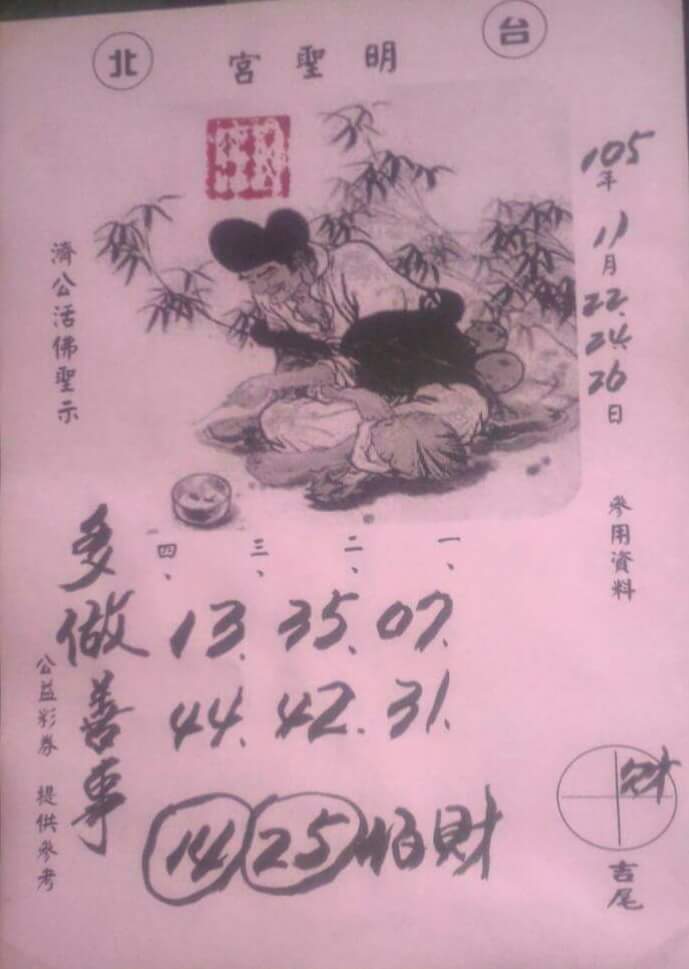 台北
明聖宮
105年11月22.24.26日
參用資料
濟公活佛聖示
一、二、三、四、
07.35.13.
31.42.44.
14 25 招財
多做善事
公益彩券 提供參考
財
吉尾